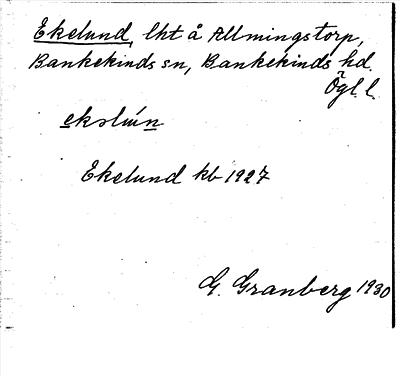 Ekelund, lht å Allmingstorp,
Bankekinds sn, Bankekinds hd.
Ögl. l.
Ekelund kb 1927
G. Granberg 1930